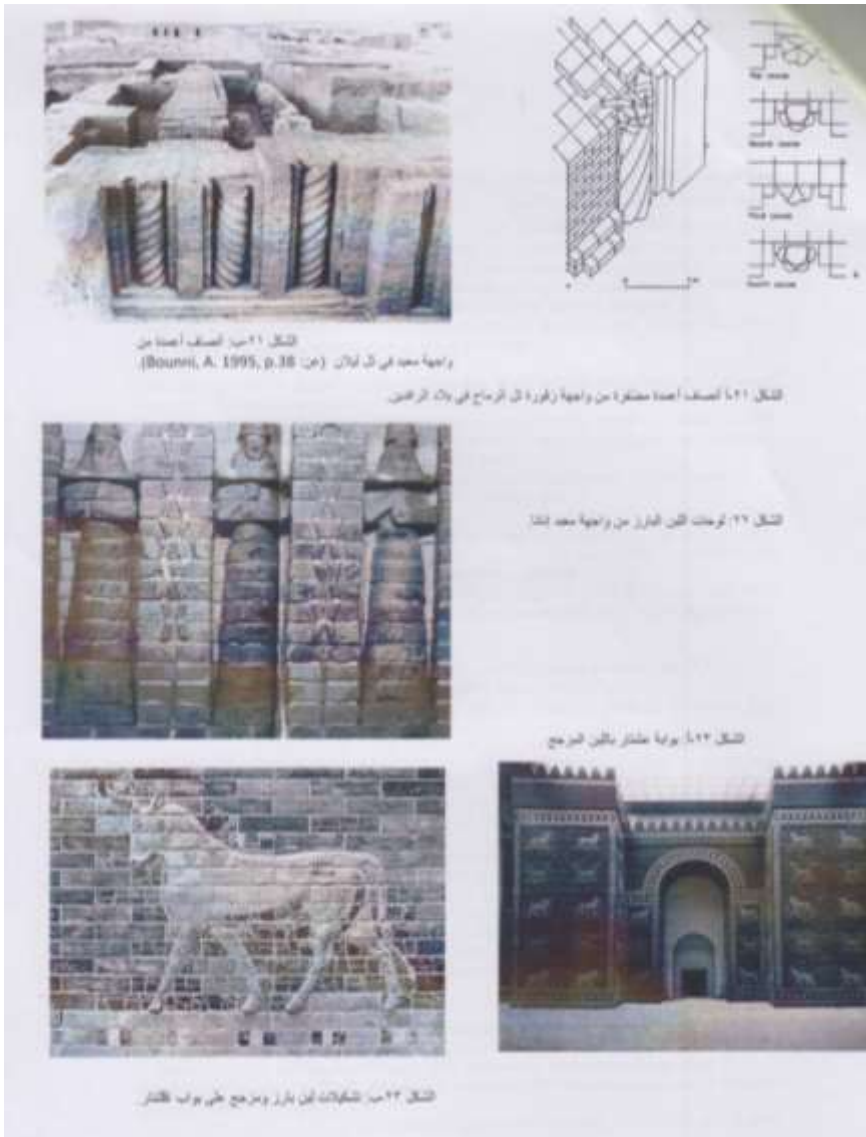 Top course
Second course
Third course
Fourth course
الشكل ٢١-ب: أنصاف أعمدة من
واجهة معبد في تل ليلان (عن: Bounni, A. 1995, p.38).
الشكل ٢١-أ أنصاف أعمدة مضفرة من واجهة زقورة تل الرماح في بلاد الرافدين.
الشكل ٢٢: لوحات اللبن البارز من واجهة معبد إنانا.
الشكل ٢٣-أ: بوابة عشتار باللبن المزجج
الشكل ٢٣-ب: تشكيلات لبن بارز ومزجج على بواب